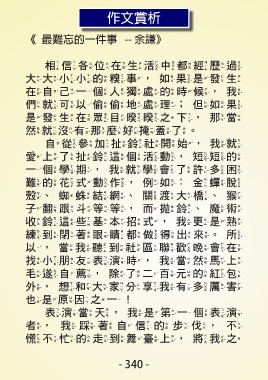 作文賞析
《 最難忘的一件事 -- 余謙》
相信各位在生活中都經歷過
大大小小的糗事，如果是發生
在自己一個人獨處的時候，我
們就可以偷偷地處理；但如果
是發生在眾目睽睽之下，那當
然就沒有那麼好掩蓋了。
自從參加扯鈴社開始，我就
愛上了扯鈴這個活動，短短的
一個學期，我就學會了許多困
難的花式動作，例如：金蟬脫
殼、蜘蛛結網、關渡大橋、猴
子翻跟斗等等，而拋鈴、魔術
收鈴這些基本招式，我更是熟
練到閉著眼睛都做得出來。所
以，當我聽到社區聯歡晚會在
找小朋友表演時，我當然馬上
毛遂自薦，除了二百元的紅包
外，想和大家分享我有多厲害
也是原因之一！
表演當天，我是第一個表演
者，我踩著自信的步伐，不
慌不忙的走到舞臺上，將我之
- 340 -